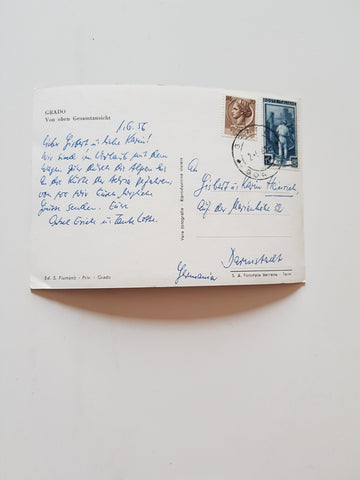 GRADO
Von oben Gesamtansicht
1.6.56
Lieber Gisbert u. liebe Karin!
Wir sind im Urlaub mit dem
Wagen über die Alpen bis
an die Küste der Adria gefahren,
von wo wir Euch herzliche
Grüsse senden. Eure
Onkel und Tante Lotte.
Ed. S. Flumani - Priv. - Grado
Vera fotografia - Riproduzione vietata
POSTE ITALIANE
An
Gisbert u. Karin Heinrich
Auf der Marienhöhe
Darmstadt
Germania
S. A. Fototipia Berretta - Terni